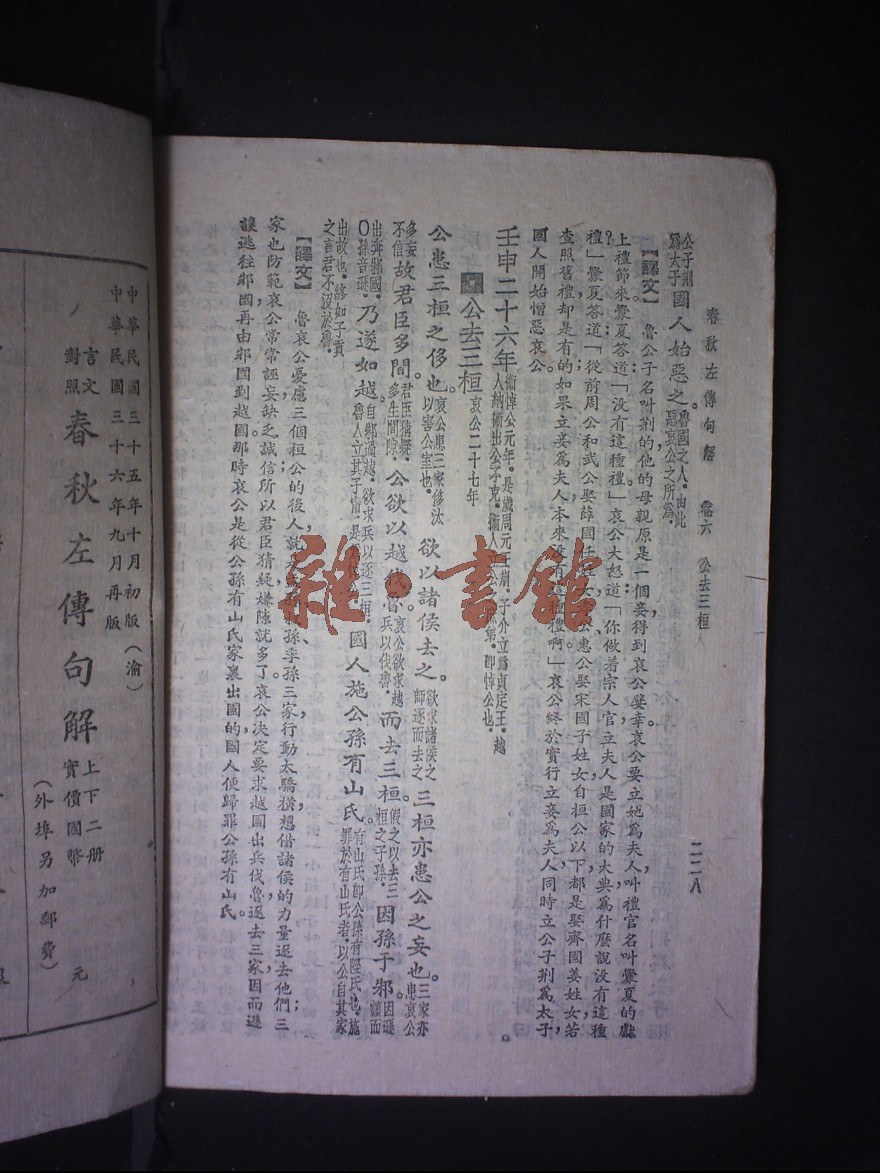 春秋左傳句解　卷六　公去三桓　二二八
公子荆爲太子。國人始惡之。魯國之人。由此惡哀公之所爲。
【譯文】　魯公子名叫荆的他的母親原是一個妾得到哀公嬖幸哀公要立她爲夫人叫禮官名叫釁夏的獻
上禮節來釁夏答道「沒有這種禮」哀公大怒道「你做着宗人官立夫人是國家的大典爲什麼說沒有這種
禮」釁夏答道「從前周公和武公娶薛國任姓女公惠公娶宋國子姓女自桓公以下都是娶齊國姜姓女若
查照舊禮却是有的如果立妾爲夫人本來沒有這種禮啊」哀公終於實行立妾爲夫人同時立公子荆爲太子
國人開始憎惡哀公。
壬申二十六年衞悼公元年。是歲周元王崩。子介立爲貞定王。越人納衞出公不克。衞人立公之弟。卽悼公也。
公去三桓哀公二十七年
公患三桓之侈也。哀公患三家修汰以害公室也。欲以諸侯去之。欲求諸侯之師逐而去之三桓亦患公之妄也。三家亦患哀公
多妄不信故君臣多間。君臣猜疑。多生間隙。公欲以越伐魯。哀公欲求越兵以伐魯。而去三桓。假之以去三桓之子孫。因孫于邾。因遜
出奔邾國。〇孫音遜。乃遂如越。自邾適越。欲求兵以逐三桓。魯人立其子甯。是爲悼公。國人施公孫有山氏。有山氏卽公孫有陘氏也。施罪於有山氏者。以公自其家
出故也。終如子貢之言君不沒於魯。
【譯文】　魯哀公憂慮三個桓公的後人就孟孫叔孫季孫三家行動太驕橫想借諸侯的力量退去他們三
家也防範哀公常常誣妄缺乏誠信所以君臣猜疑嫌隙就多了哀公決定要求越國出兵伐魯退去三家因而遜
讓逃往邾國再由邾國到越國那時哀公是從公孫有山氏家裏出國的國人便歸罪公孫有山氏。
中華民國三十五年十月初版（渝）
中華民國三十六年九月再版
言文對照　春秋左傳句解　上下二册　實價國幣　元
（外埠另加郵費）
雜·書館